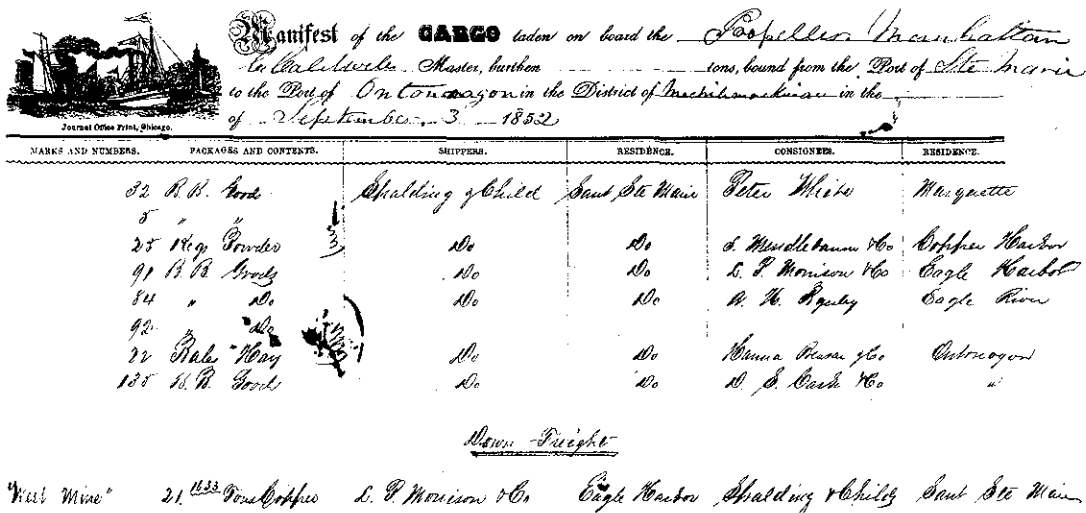 Manifest of the CARGO laden on board the Propeller Manhattan
Caldwell Master, burthen tons, bound from the Port of Ste Marie
to the Port of Ontonagon in the District of Mechilimackinac in the
of September 3 1852
Journal Office Print, Chicago.
MARKS AND NUMBERS. PACKAGES AND CONTENTS. SHIPPERS. RESIDENCE. CONSIGNEES. RESIDENCE.
32 B. B. Goods Spalding & Child Saut Ste Marie Peter White Marquette
5 " "
25 Kegs Powder Do Do S. Mendlebaum & Co Copper Harbor
91 B B Goods Do Do L. P. Morrison & Co Eagle Harbor
84 " Do Do Do H. Eagle River
92 " Do
22 Bales Hay Do Do Hanna & Co Ontonagon
135 B. B. Goods Do Do D. S. Cash & Co "
Down Freight
"West Mine" 21. 1633 Tons Copper L. P. Morrison & Co Eagle Harbor Spalding & Childs Saut Ste Marie